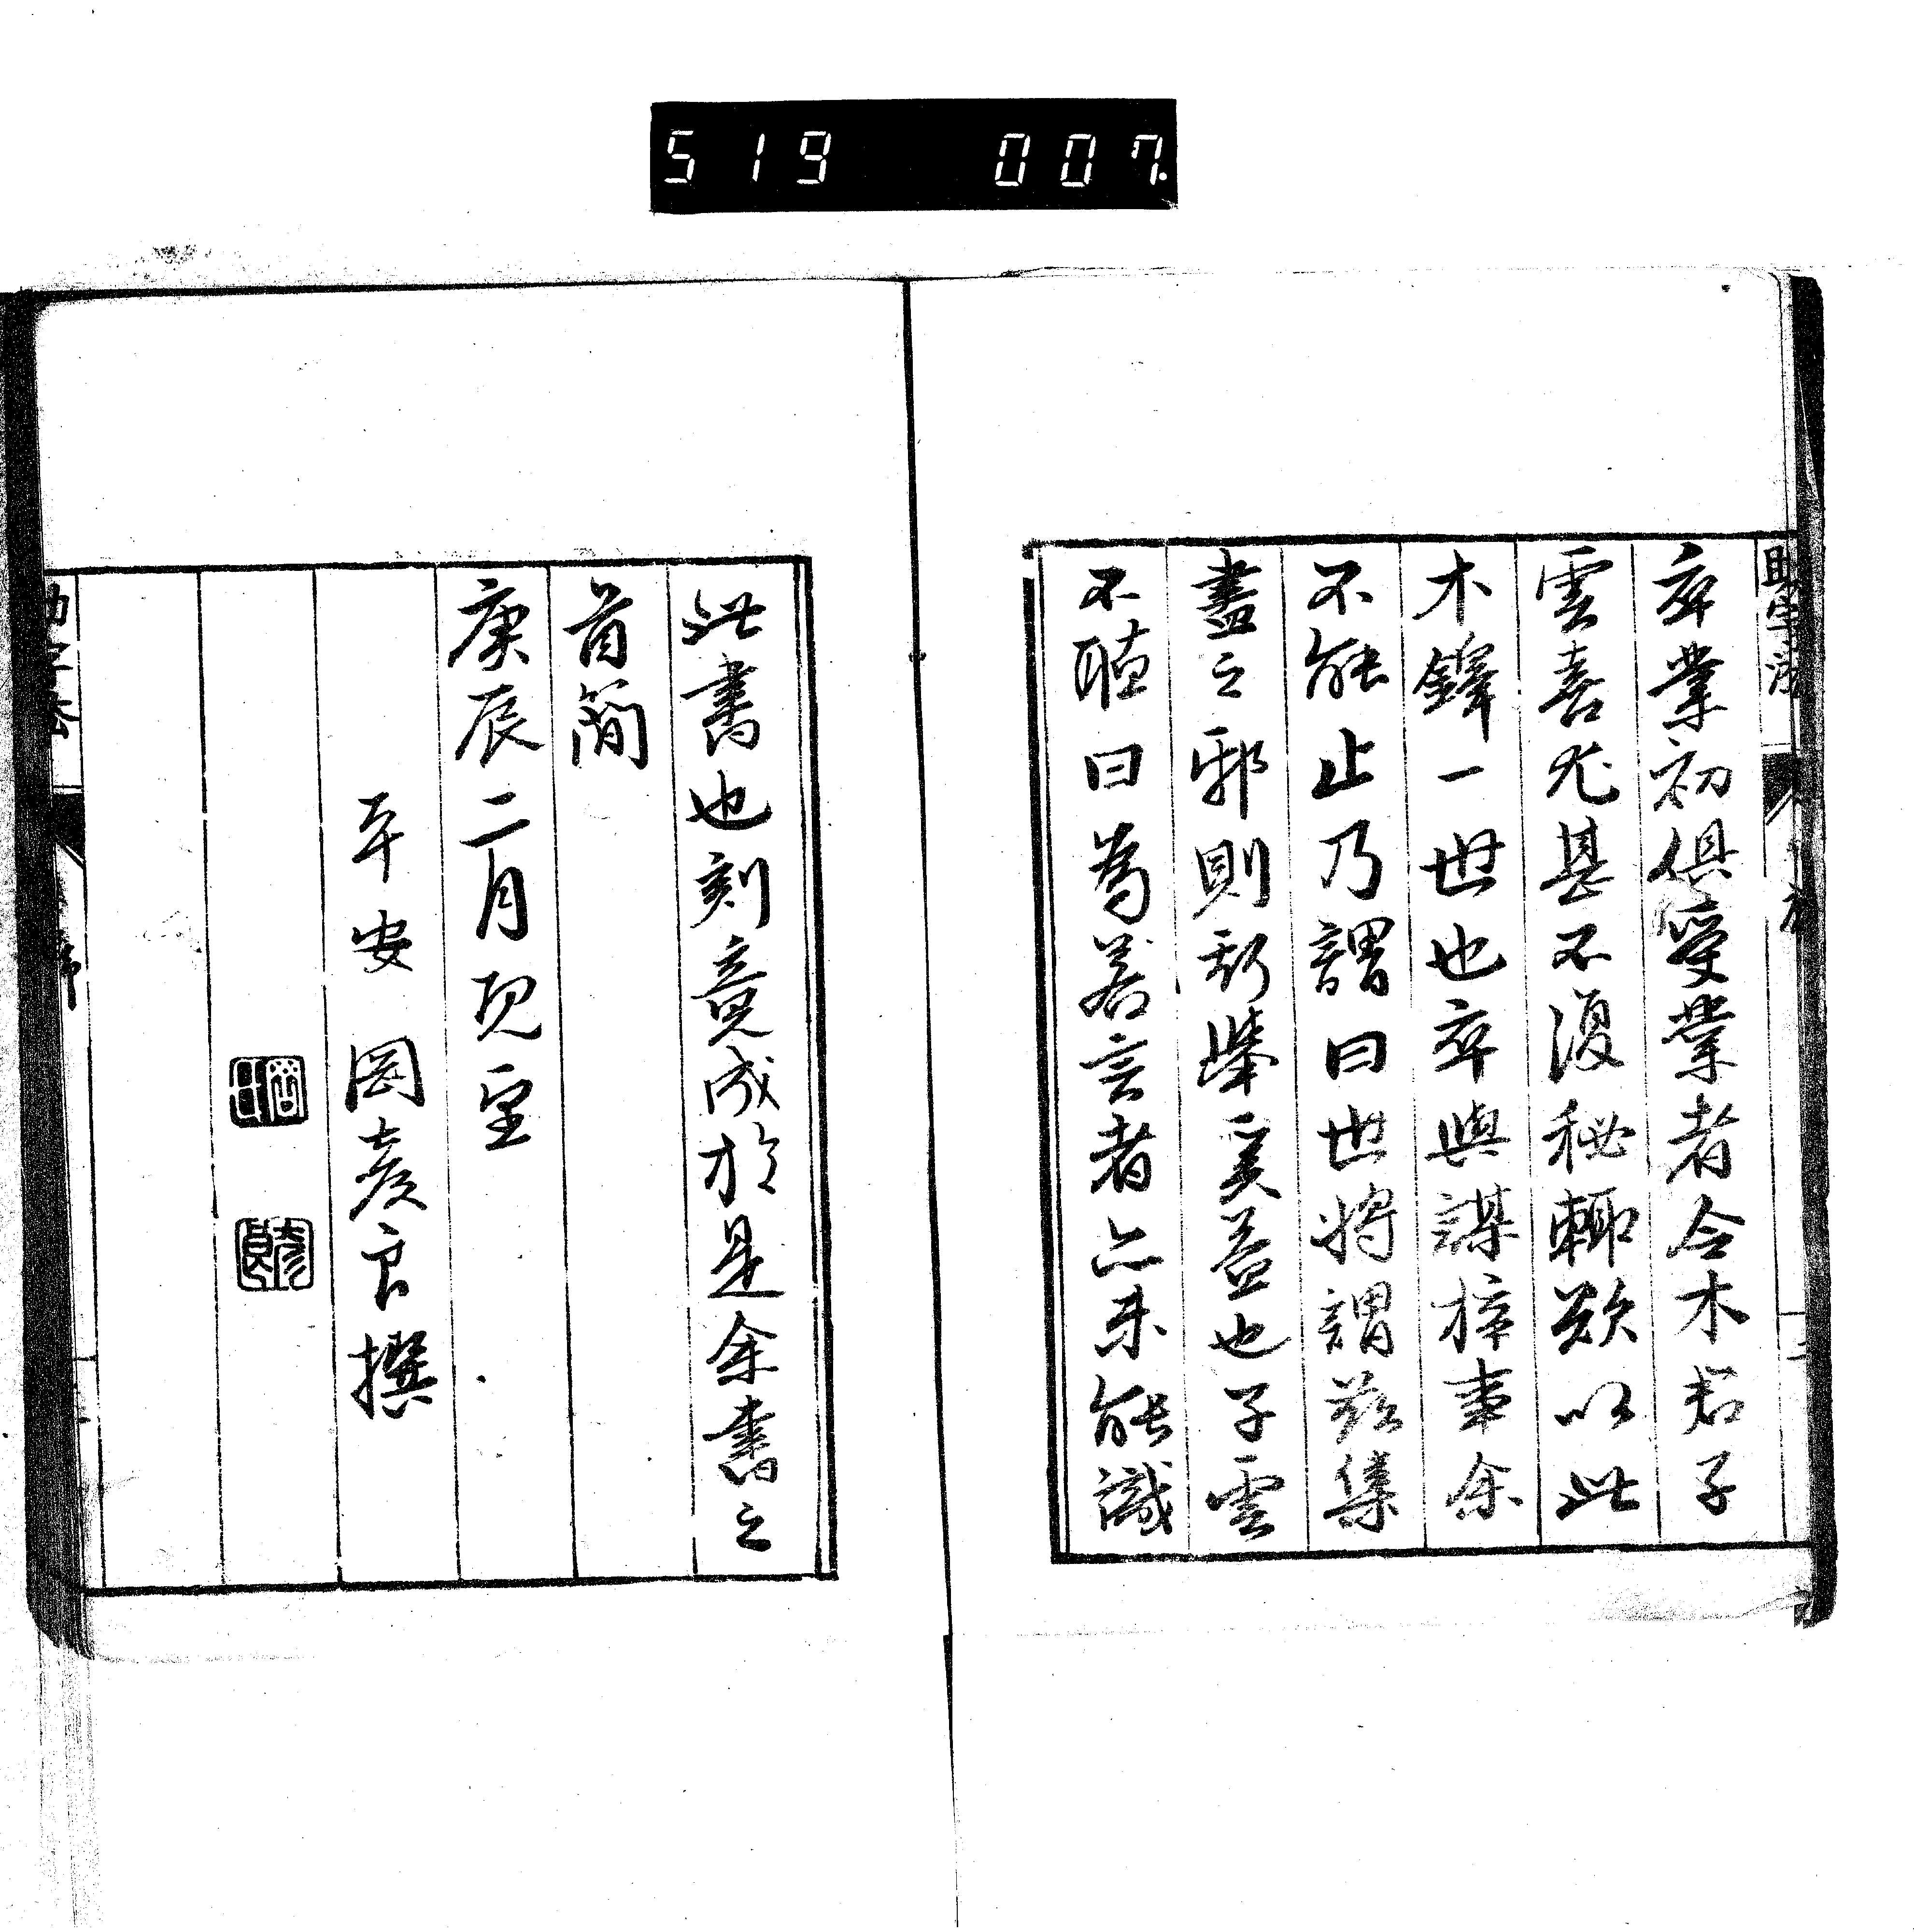 519 007.
卒業初俱受業者令木君子
雲喜尤甚不復秘輙欲以此
木鐸一世也卒與謀梓事余
不能止乃謂曰世將謂茲集
盡之邪則所舉奚益也子雲
不聴曰為若言者亦未能識
此書也刻竟成於是余書之
首簡
庚辰二月既望
平安岡彦良撰